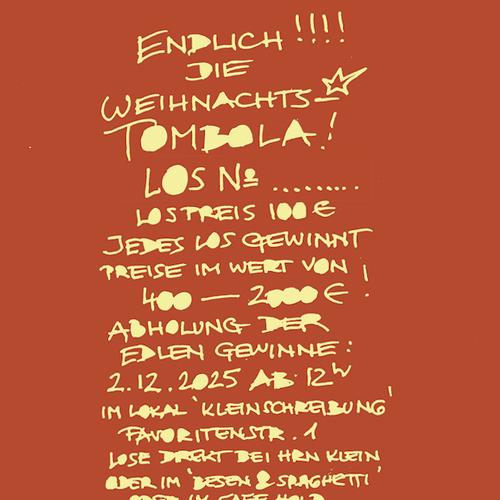 ENDLICH !!!!
DIE
WEIHNACHTS-
TOMBOLA!
LOS № .........
LOSPREIS 100 €
JEDES LOS GEWINNT
PREISE IM WERT VON
400 — 2000 € !
ABHOLUNG DER
EDLEN GEWINNE:
2.12.2025 AB 12h
IM LOKAL 'KLEINSCHREIBUNG'
FAVORITENSTR. 1
LOSE DIREKT BEI HRN KLEIN
ODER IM 'BESEN & SPAGHETTI'
ODER IM CAFE HOLD